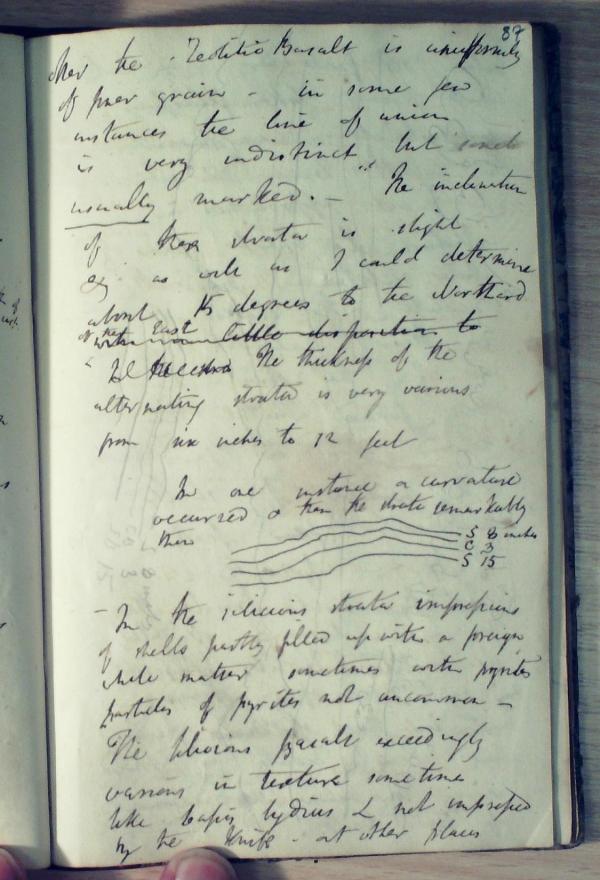 87
the Zeolitic Basalt is uniformly
of finer grain - in some few
instances the line of union
is very indistinct but
usually marked. - "The inclination
of these strata is slight
as well as I could determine
about 15 degrees to the Northard
of the East
with little disposition to
The thickness of the
alternating strata is very various
from six inches to 12 feet
In one instance a curvature
occurred & then the strata remarkably
thin
S 8 inches
C 3
S 15
- In the silicious strata impressions
of shells partly filled up with a foreign
white matter sometimes with pyrites
particles of pyrites not uncommon -
The silicious Basalt exceedingly
various in texture sometime
like Lapis lydius & not impressed
by the knife - at other places